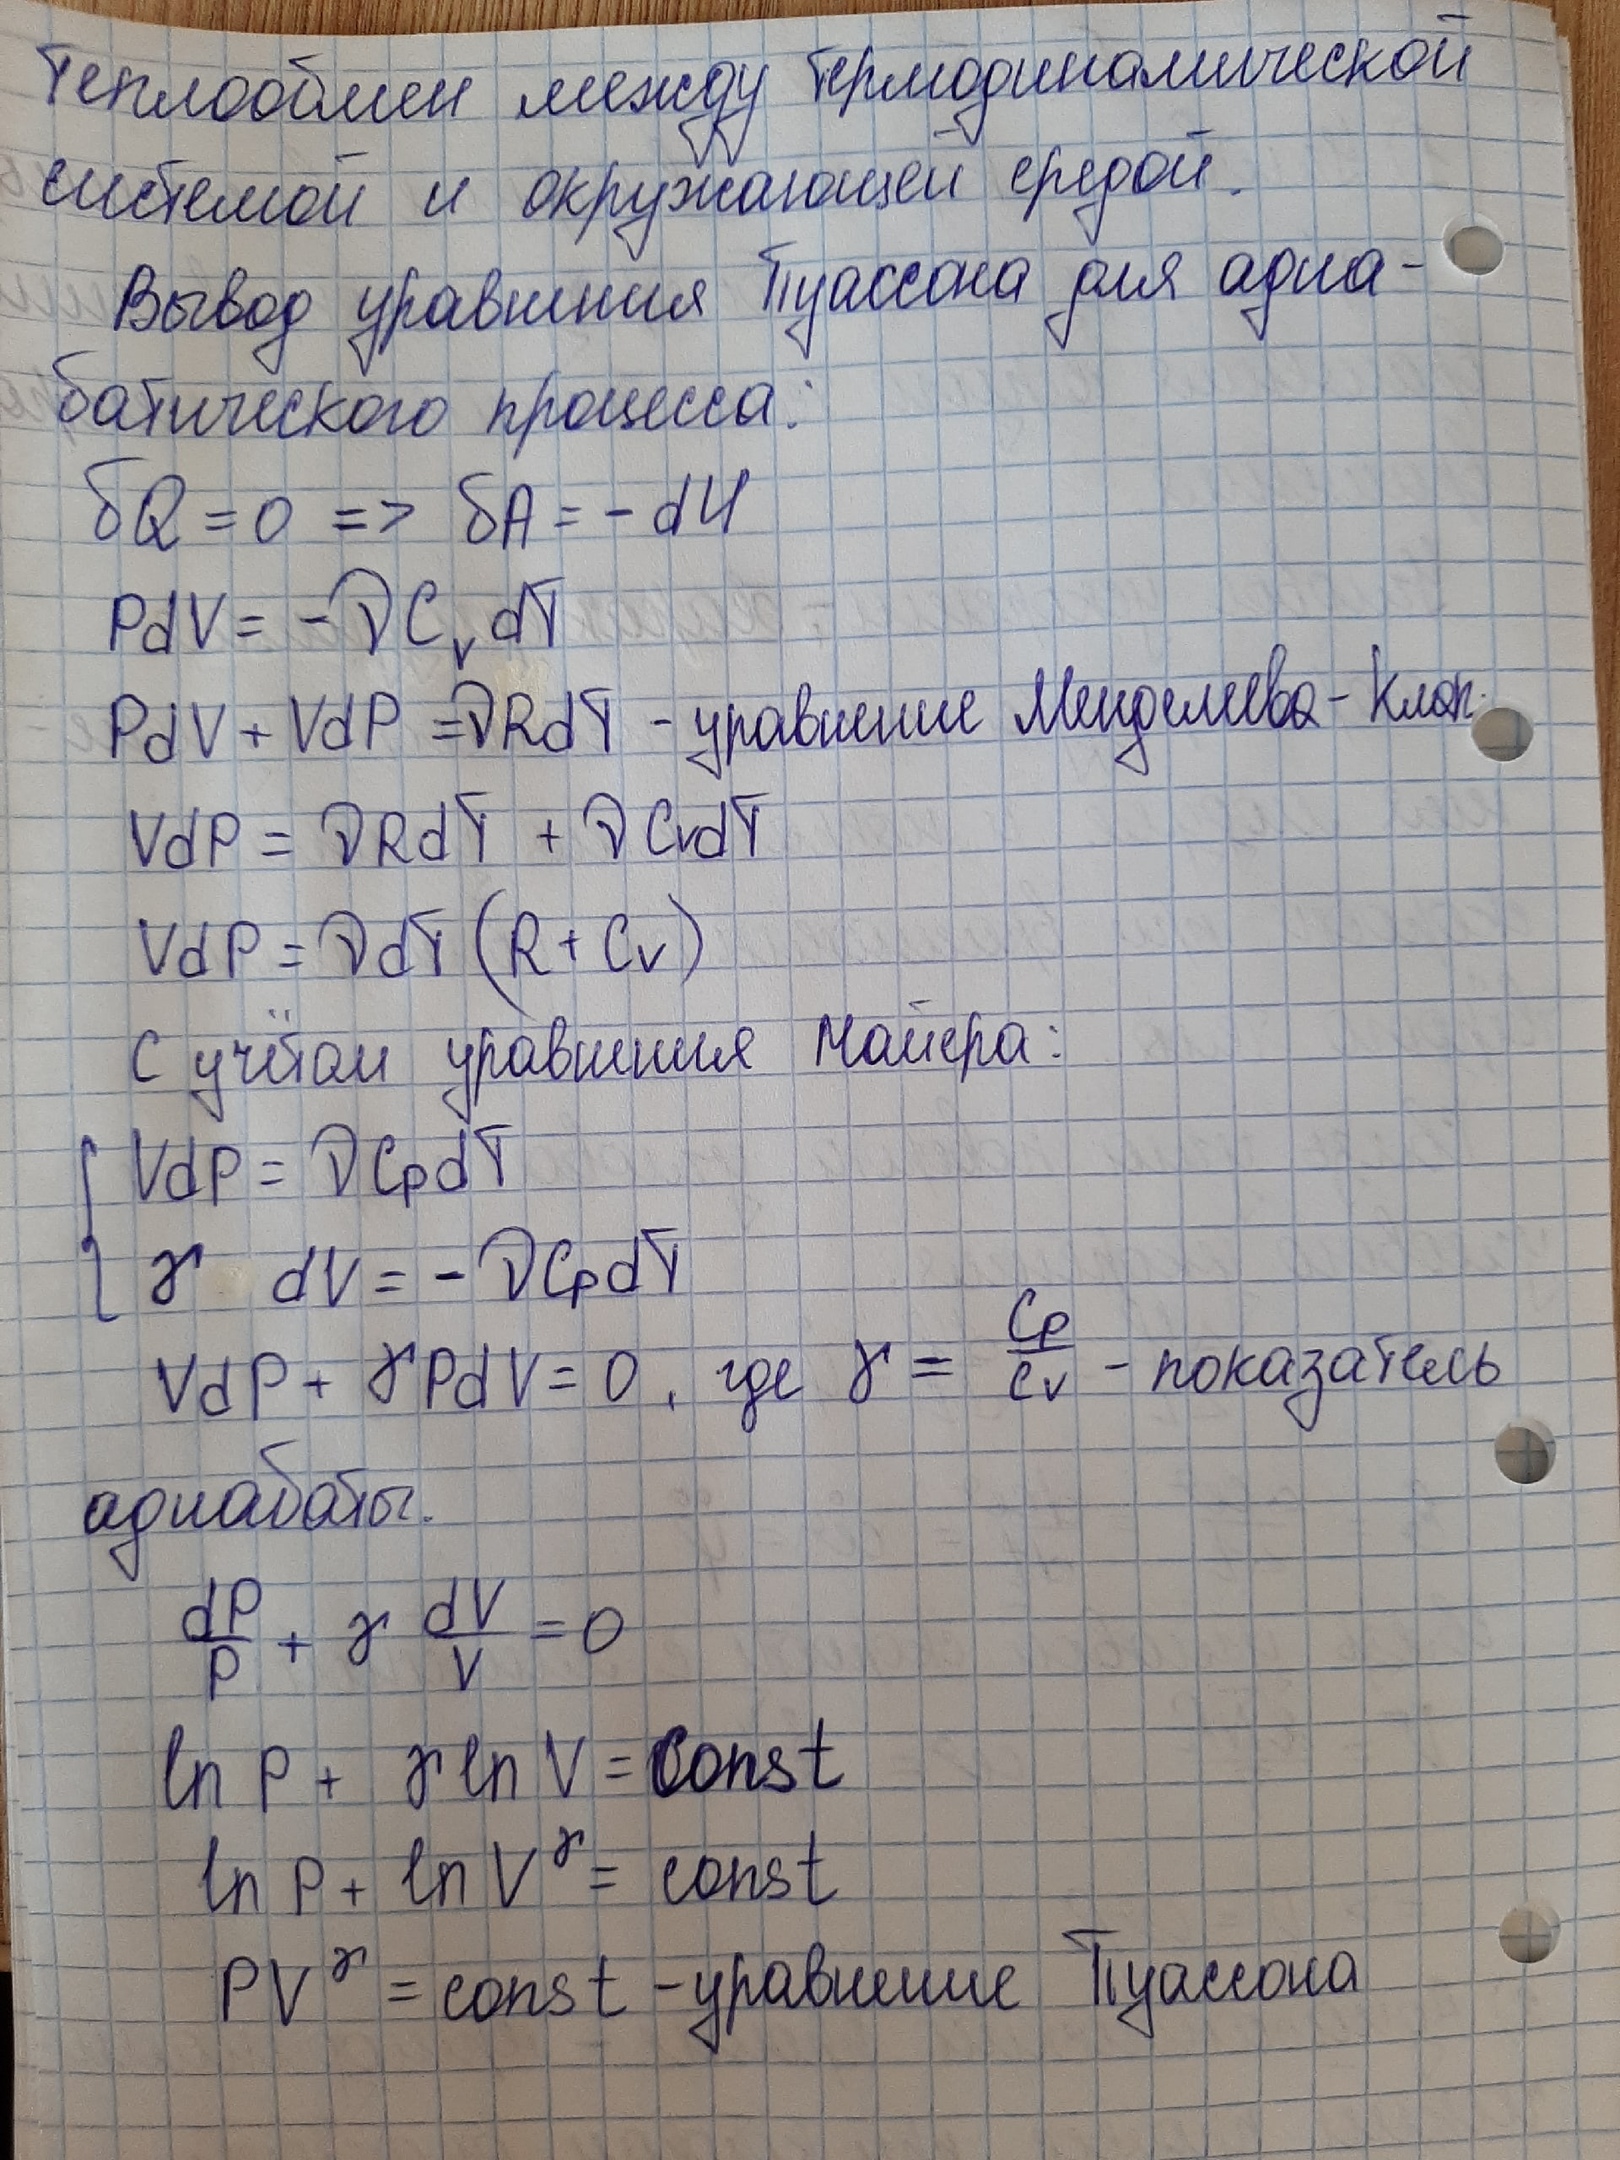 теплообмен между термодинамической
системой и окружающей средой.
Вывод уравнения Пуассона для адиа-
батического процесса:
δQ = 0 => δA = - dU
PdV = - νCvdT
PdV + VdP = νRdT - уравнение Менделеева - Клап.
VdP = νRdT + νCvdT
VdP = νdT (R + Cv)
С учётом уравнения Майера:
VdP = νCpdT
γ dV = - νCpdT
VdP + γPdV = 0, где γ = Cp/Cv - показатель
адиабаты.
dP/P + γ dV/V = 0
ln P + γ ln V = const
ln P + ln V^γ = const
PV^γ = const - уравнение Пуассона